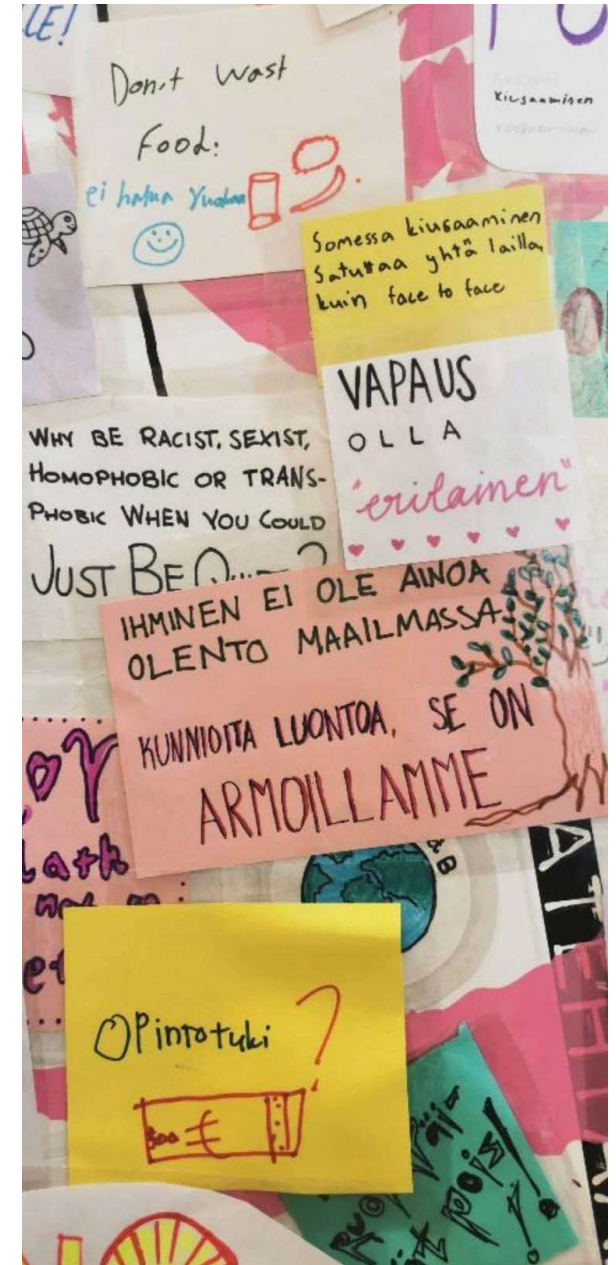 LE!
Don't wast
Food:
ei halua
kiusaaminen
Somessa kiusaaminen
Satuttaa yhtä lailla
kuin face to face
VAPAUS
OLLA
"erilainen"
WHY BE RACIST, SEXIST,
HOMOPHOBIC OR TRANS-
PHOBIC WHEN YOU COULD
JUST BE
IHMINEN EI OLE AINOA
OLENTO MAAILMASSA.
KUNNIOITA LUONTOA, SE ON
ARMOILLAMME
&B
Opintotuki ?
300 €